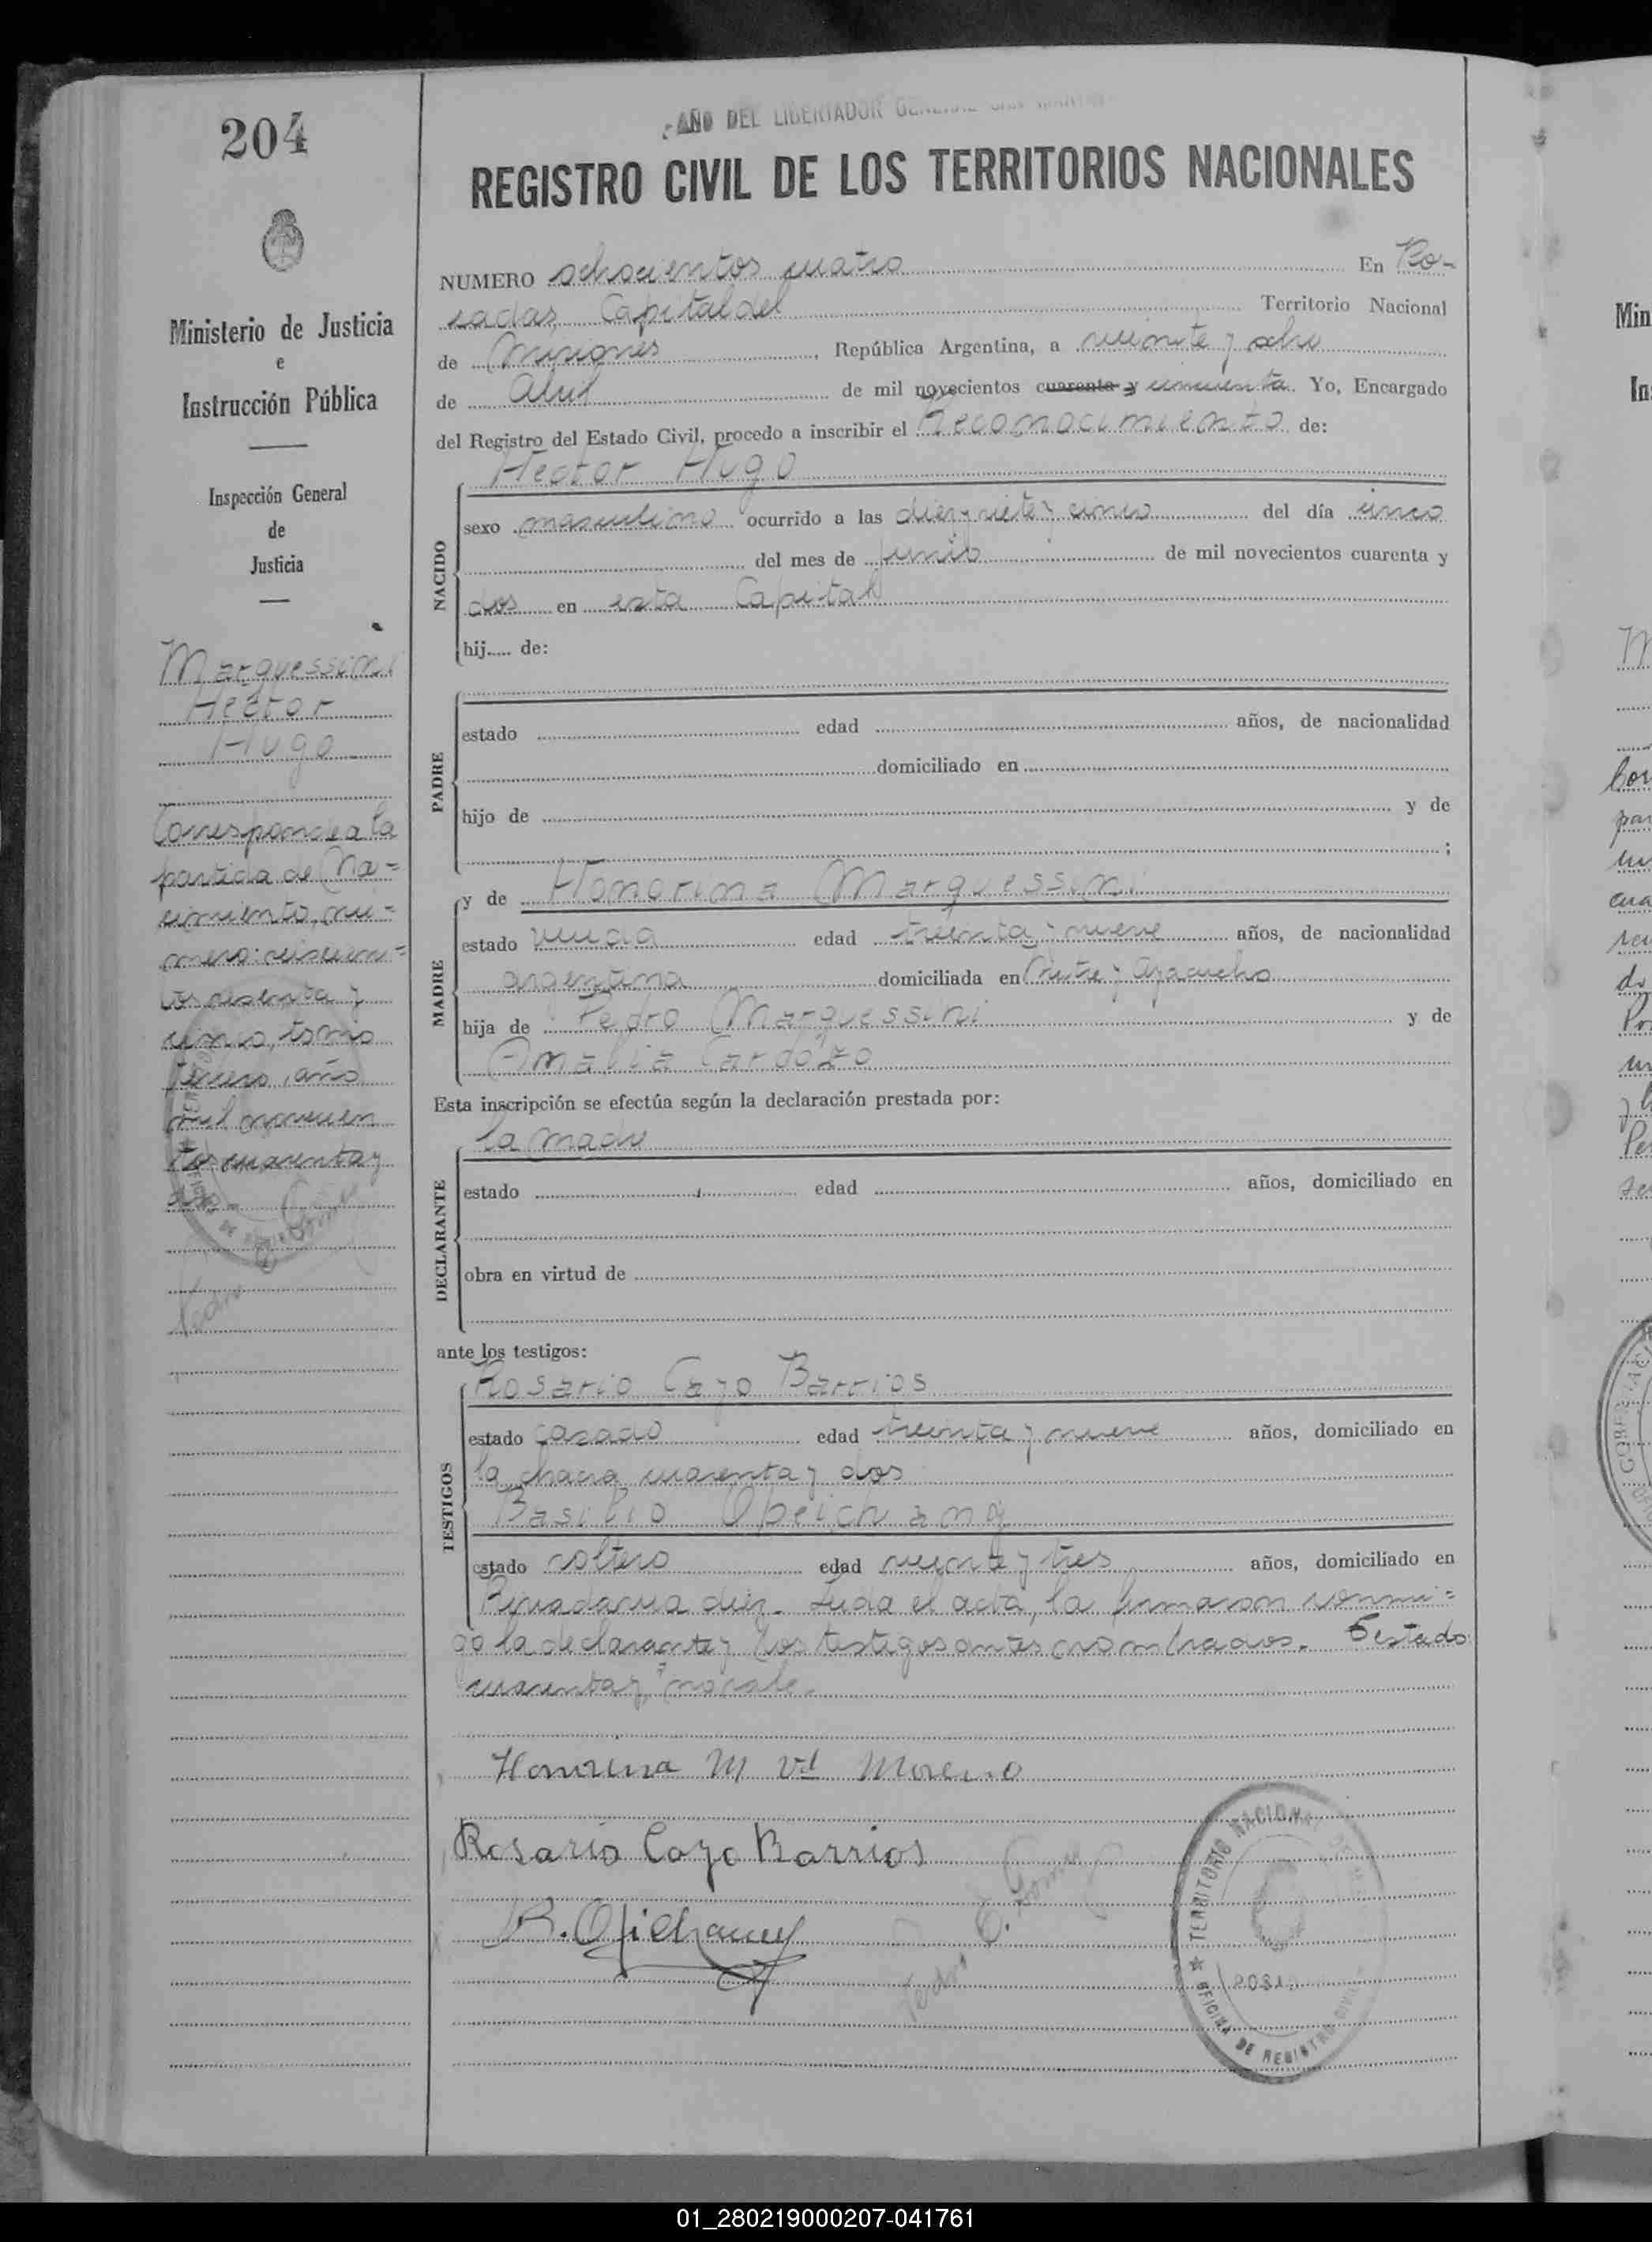 204
AÑO DEL LIBERTADOR GENERAL SAN MARTIN
REGISTRO CIVIL DE LOS TERRITORIOS NACIONALES
Ministerio de Justicia
e
Instrucción Pública
Inspección General
de
Justicia
Marquessini
Hector
Hugo
Corresponde a la
partida de Na=
cimiento, nu=
mero: seiscien=
tos sesenta y
cinco, tomo
tercero, año
mil novecien
tos cuarenta y
dos.-
NUMERO ochocientos cuatro En Po-
sadas, Capital del Territorio Nacional
de Misiones, República Argentina, a veinte y ocho
de Abril de mil novecientos cuarenta y cincuenta. Yo, Encargado
del Registro del Estado Civil, procedo a inscribir el Reconocimiento de:
Hector Hugo
NACIDO
sexo masculino ocurrido a las diez y siete y cinco del día cinco
del mes de junio de mil novecientos cuarenta y
dos en esta Capital
hij..... de:
PADRE
estado edad años, de nacionalidad
domiciliado en
hijo de y de
;
MADRE
y de Honorina Marquessini
estado viuda edad treinta y nueve años, de nacionalidad
argentina domiciliada en Mitre y Ayacucho
hija de Pedro Marquessini y de
Amalia Cardozo
Esta inscripción se efectúa según la declaración prestada por:
DECLARANTE
la madre
estado edad años, domiciliado en
obra en virtud de
ante los testigos:
TESTIGOS
Rosario Cazo Barrios
estado casado edad treinta y nueve años, domiciliado en
la chacra cuarenta y dos
Basilio Opeichany
estado soltero edad veinte y tres años, domiciliado en
Rivadavia diez. Leida el acta, la firmaron conmi=
go la declarante y los testigos antes nombrados. Testado
cuarenta y, no vale.
Honorina M Vd Moreno
Rosario Cazo Barrios
B. Opichany
TERRITORIO NACIONAL DE
OFICINA DE REGISTRO CIVIL
01_280219000207-041761